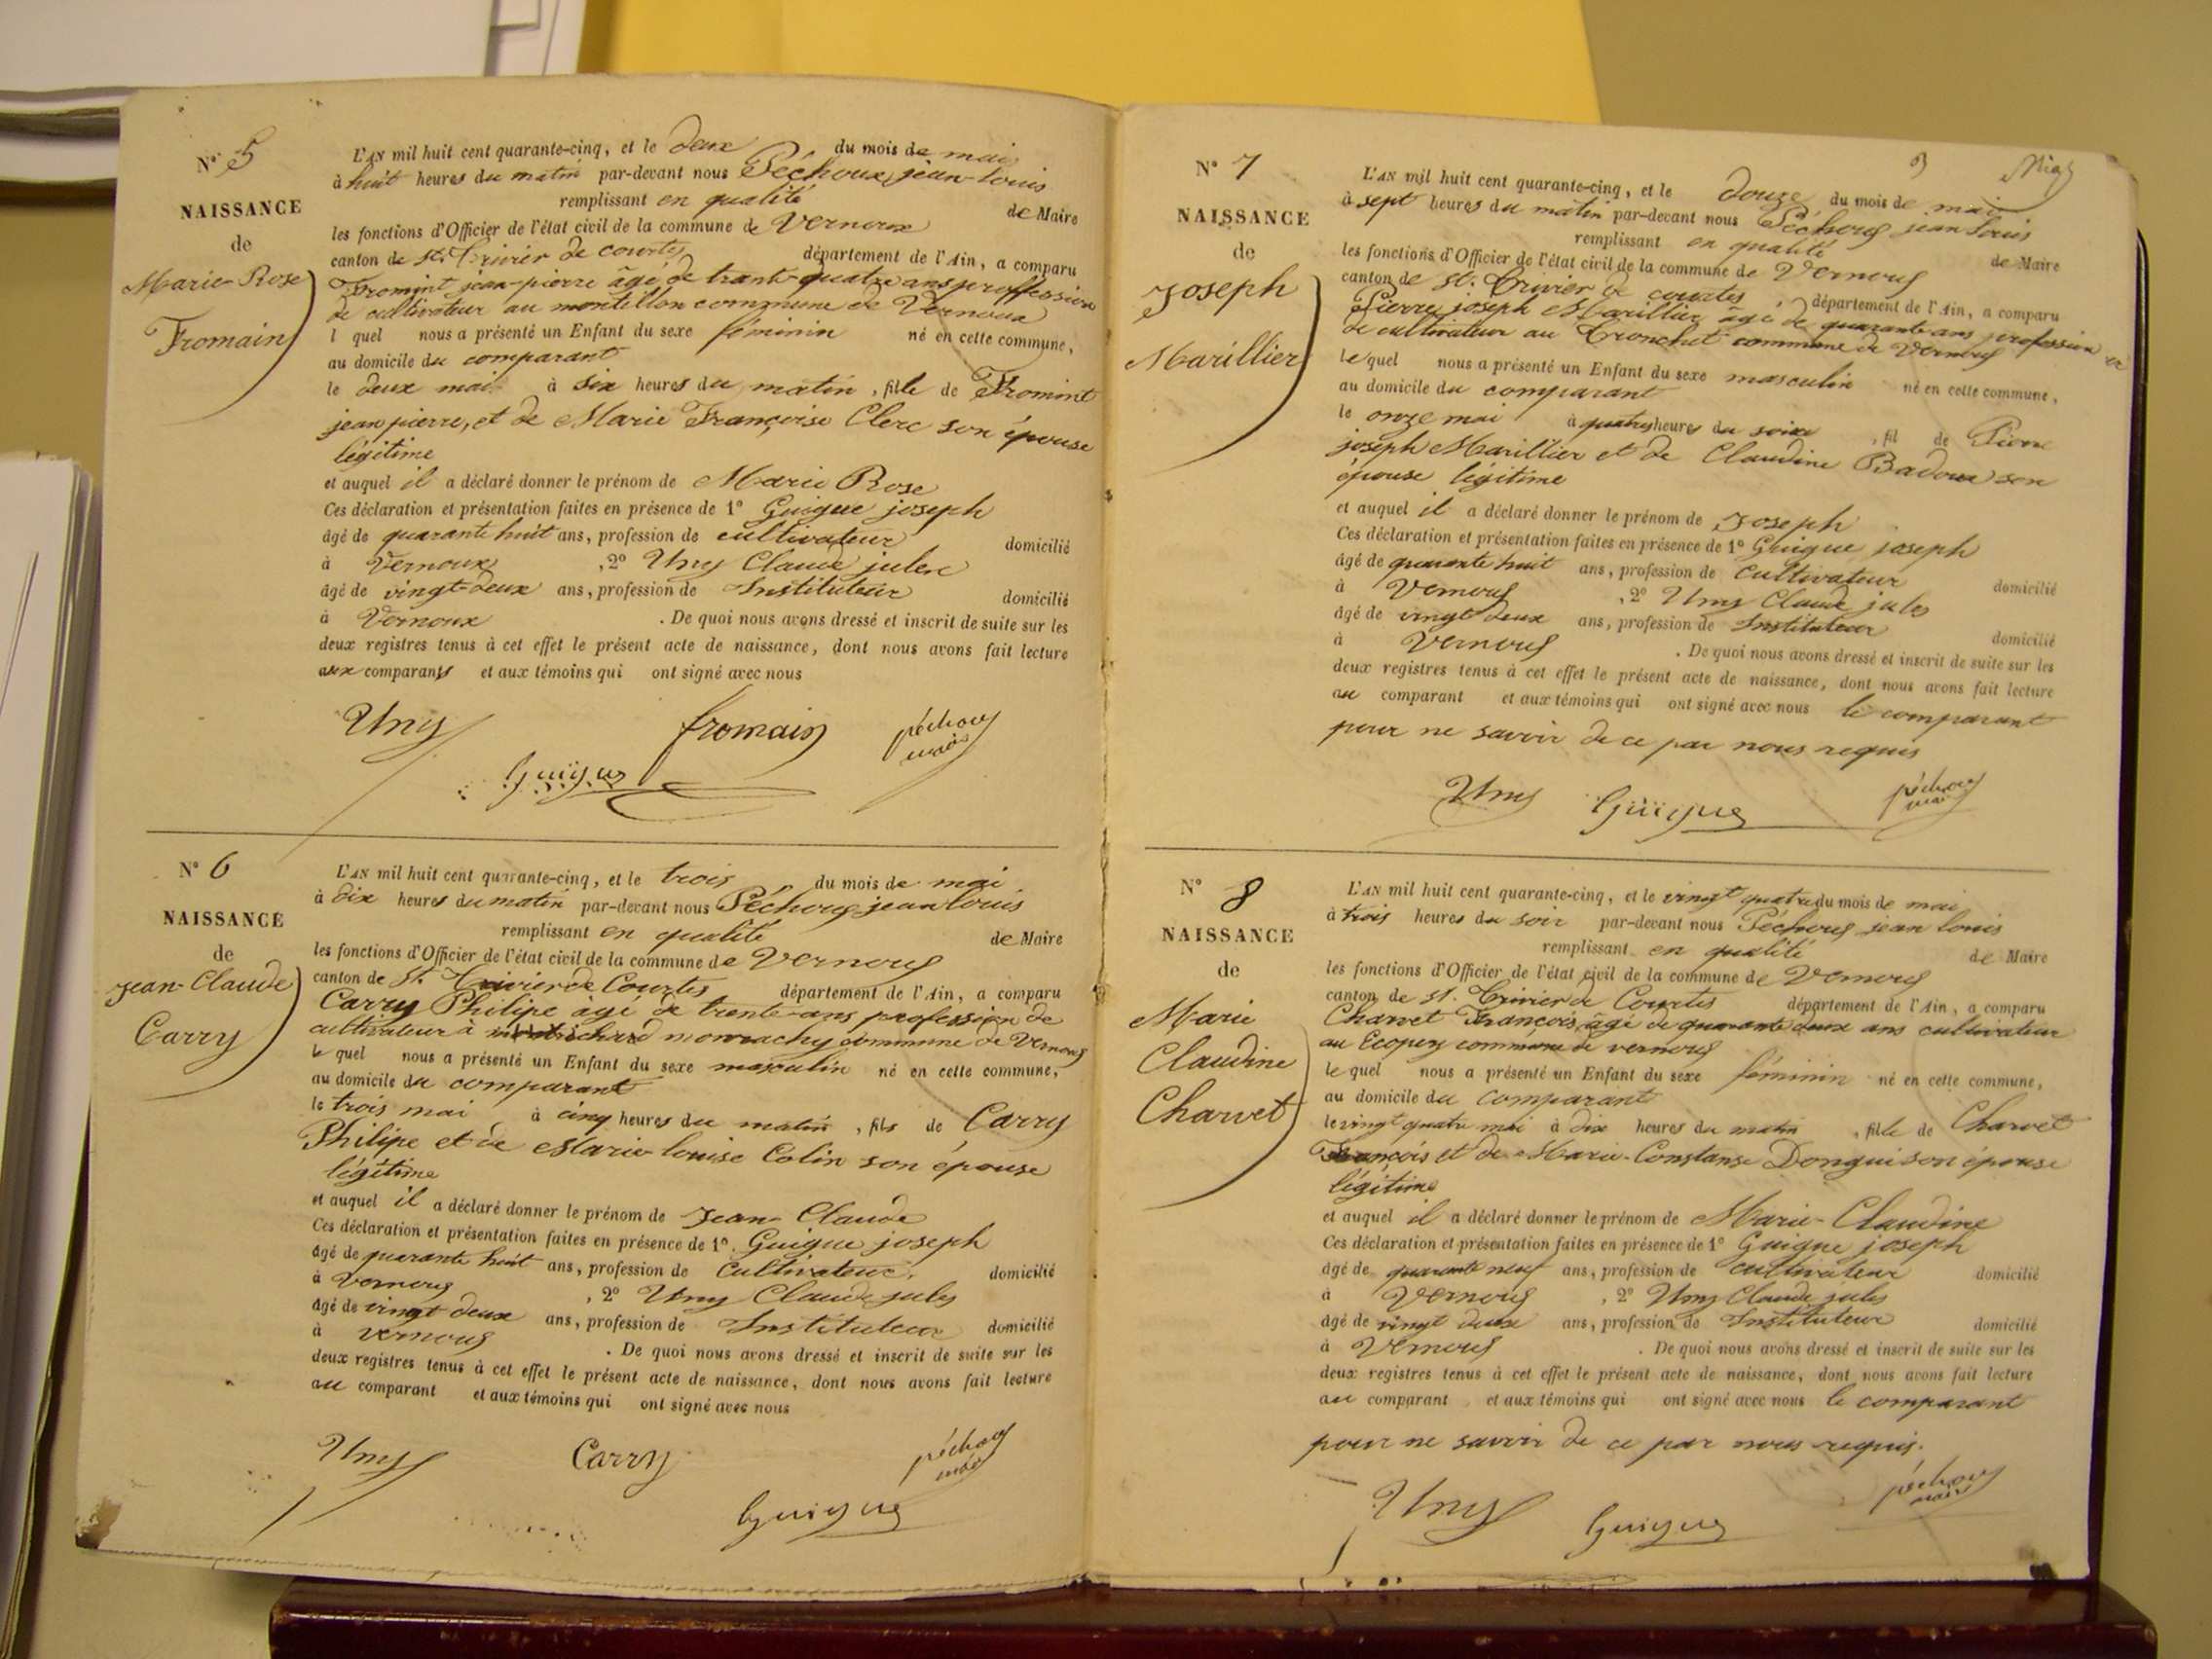 N° 5
NAISSANCE
de
Marie-Rose
Fromain
L'AN mil huit cent quarante-cinq, et le deux du mois de mai
à huit heures du matin par-devant nous Péchoux jean-louis
remplissant en qualité de Maire
les fonctions d'Officier de l'état civil de la commune de Vernoux
canton de St. Trivier de courtes département de l'Ain, a comparu
Fromint jean-pierre âgé de trante-quatre ans proffession
de cultivateur au montellon commune de Vernoux
l quel nous a présenté un Enfant du sexe féminin né en cette commune,
au domicile du comparant
le deux mai à six heures du matin, fille de Fromint
jean pierre, et de Marie Françoise Clerc son épouse
légitime
et auquel il a déclaré donner le prénom de Marie Rose
Ces déclaration et présentation faites en présence de 1° Guigue joseph
âgé de quarante huit ans, profession de cultivateur domicilié
à Vernoux, 2° Uny Claude jules
âgé de vingt-deux ans, profession de Instituteur domicilié
à Vernoux. De quoi nous avons dressé et inscrit de suite sur les
deux registres tenus à cet effet le présent acte de naissance, dont nous avons fait lecture
aux comparants et aux témoins qui ont signé avec nous
Uny fromain péchoux
maire
Guigue
N° 6
NAISSANCE
de
Jean-Claude
Carry
L'AN mil huit cent quarante-cinq, et le trois du mois de mai
à dix heures du matin par-devant nous Péchoux jean louis
remplissant en qualité de Maire
les fonctions d'Officier de l'état civil de la commune de Vernoux
canton de St. Trivier de Courtes département de l'Ain, a comparu
Carry Philipe âgé de trente-ans profession de
cultivateur à commune de Vernoux
le quel nous a présenté un Enfant du sexe masculin né en cette commune,
au domicile du comparant
le trois mai à cinq heures du matin, fils de Carry
Philipe et de Marie louise Colin son épouse
légitime
et auquel il a déclaré donner le prénom de Jean-Claude
Ces déclaration et présentation faites en présence de 1° Guigue joseph
âgé de quarante huit ans, profession de Cultivateur, domicilié
à Vernoux, 2° Uny Claude jules
âgé de vingt deux ans, profession de Instituteur domicilié
à vernoux. De quoi nous avons dressé et inscrit de suite sur les
deux registres tenus à cet effet le présent acte de naissance, dont nous avons fait lecture
au comparant et aux témoins qui ont signé avec nous
Uny Carry péchoux
maire
Guigue
3
N° 7
NAISSANCE
de
Joseph
Marillier
L'AN mil huit cent quarante-cinq, et le douze du mois de mai
à sept heures du matin par-devant nous Péchoux jean louis
remplissant en qualité de Maire
les fonctions d'Officier de l'état civil de la commune de Vernoux
canton de St. Trivier de courtes, département de l'Ain, a comparu
Pierre joseph Marillier âgé de quarante ans profession
de cultivateur au Tronchet commune de Vernoux
le quel nous a présenté un Enfant du sexe masculin né en cette commune,
au domicile du comparant
le onze mai à quatre heures du soir, fil de Pierre
joseph Marillier et de Claudine Badoux son
épouse légitime
et auquel il a déclaré donner le prénom de Joseph
Ces déclaration et présentation faites en présence de 1° Guigue joseph
âgé de quarante huit ans, profession de Cultivateur domicilié
à Vernoux, 2° Uny Claude jules
âgé de vingt deux ans, profession de Instituteur domicilié
à Vernoux. De quoi nous avons dressé et inscrit de suite sur les
deux registres tenus à cet effet le présent acte de naissance, dont nous avons fait lecture
au comparant et aux témoins qui ont signé avec nous le comparant
pour ne savoir de ce par nous requis
Uny Guigue péchoux
maire
N° 8
NAISSANCE
de
Marie
Claudine
Charvet
L'AN mil huit cent quarante-cinq, et le vingt quatre du mois de mai
à trois heures du soir par-devant nous Péchoux jean louis
remplissant en qualité de Maire
les fonctions d'Officier de l'état civil de la commune de Vernoux
canton de St. Trivier de Courtes département de l'Ain, a comparu
Charvet François âgé de quarante deux ans cultivateur
au Ecopey commune de vernoux
le quel nous a présenté un Enfant du sexe féminin né en cette commune,
au domicile du comparant
le vingt quatre mai à dix heures du matin, fille de Charvet
François et de Marie-Constanse Donguison épouse
légitime
et auquel il a déclaré donner le prénom de Marie-Claudine
Ces déclaration et présentation faites en présence de 1° Guigue joseph
âgé de quarante neuf ans, profession de cultivateur domicilié
à Vernoux, 2° Uny Claude jules
âgé de vingt deux ans, profession de Instituteur domicilié
à Vernoux. De quoi nous avons dressé et inscrit de suite sur les
deux registres tenus à cet effet le présent acte de naissance, dont nous avons fait lecture
au comparant, et aux témoins qui ont signé avec nous le comparant
pour ne savoir de ce par nous requis.
Uny Guigue péchoux
maire